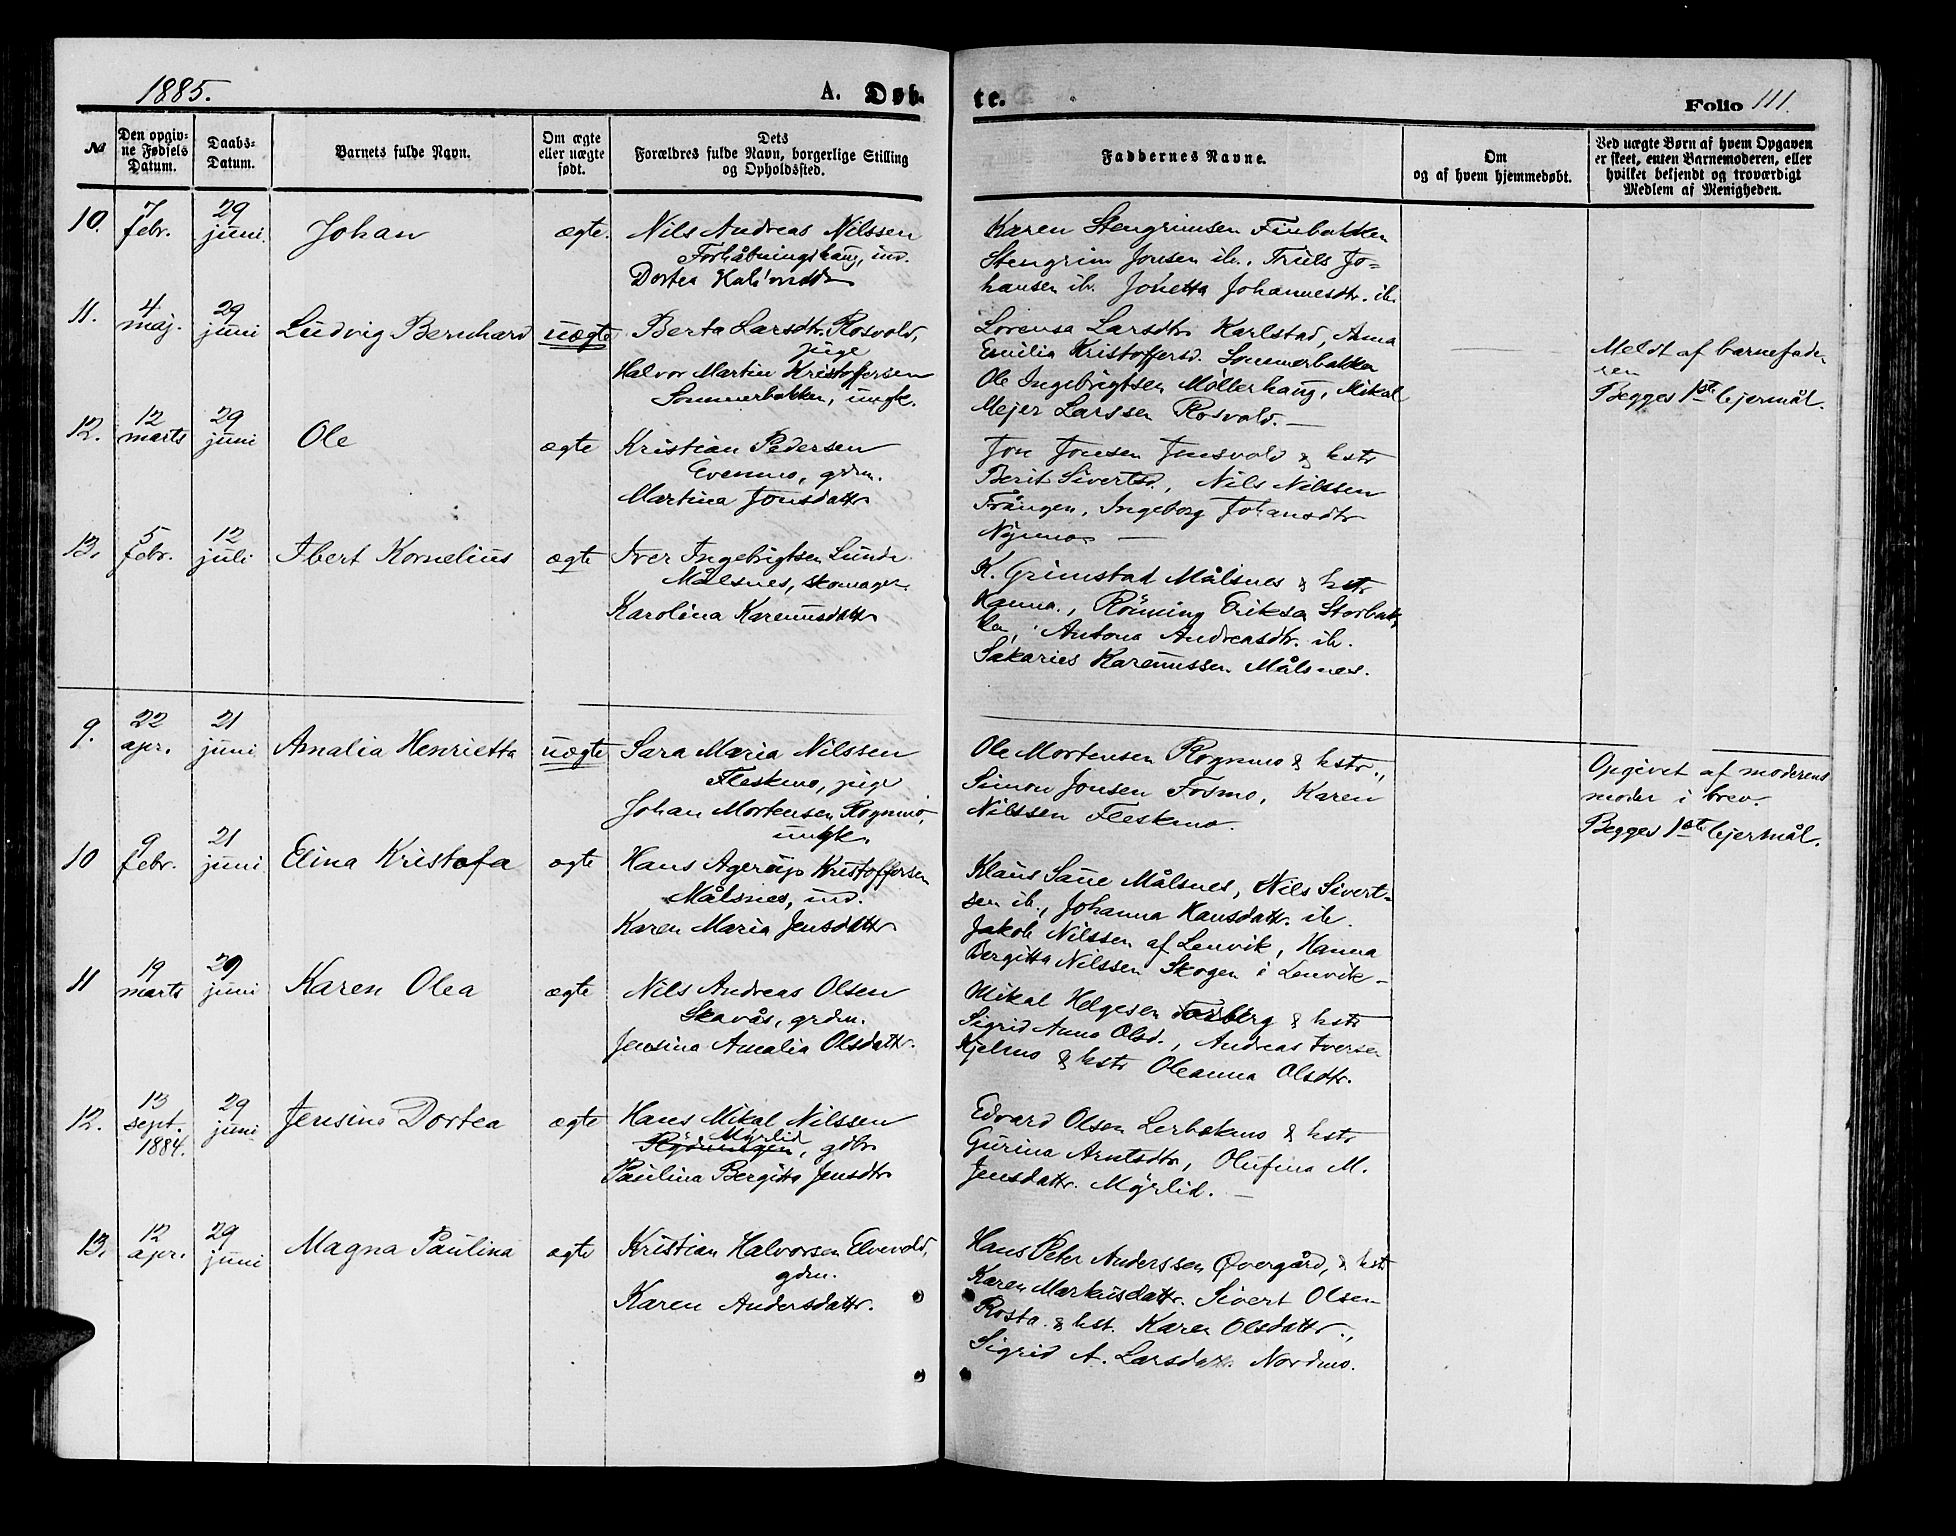 1885.
A. Døb-
te.
Folio 111.
№
Den opgiv-
ne Fødsels
Datum.
Daabs-
Datum.
Barnets fulde Navn.
Om ægte
eller uægte
født.
Dets
Forældres fulde Navn, borgerlige Stilling
og Opholdssted.
Faddernes Navne.
Om
og af hvem hjemmedøbt.
Ved uægte Børn af hvem Opgaven
er skeet, enten Barnemoderen, eller
hvilket bekjendt og troværdigt
Medlem af Menigheden.
10.
7
febr.
29
juni
Johan
ægte.
Nils Andreas Nilssen
Forhåbningshaug, ind.
Dortea
Karen Stengrimsen Finbakken
Stengrim Jonsen ib., Truls Jo-
hansen ib. Jonetta Johannesdtr. ib.
11.
4
maj.
29
juni
Ludvig Bernhard
uægte
Berta Larsdtr. Rosvold,
pige
Halvor Martin Kristoffersen
Sommerbakken, ungk.
Lorensa Larsdtr Karlstad, Anna
Emilia Kristoffersd. Sommerbakken
Ole Ingebrigtsen Møllerhaug, Mikal
Mejer Larssen Rosvold. —
Meldt af barnefade-
ren
Begges 1ste lejermål.
12.
12
marts
29
juni
Ole
ægte
Kristian Pedersen
Evenmo, grdm.
Martina Jonsdattr
Jon Jonsen Jonsvold & hstr
Berit Sivertsd., Nils Nilssen
Frången, Ingeborg Johansdtr
Nymo —
13.
5
febr.
12
juli
Ibert Kornelius
ægte
Iver Ingebrigtsen Lunde
Målsnes, skomager.
Karolina Karenusdattr
K. Grimstad Målsnes & hstr
Hanna., Rönning Eriksa Storbak-
ken, Antona Andreasdtr. ib.
Sakaries Karenussen Målsnes.
9.
22
apr.
21
juni
Amalia Henrietta
uægte
Sara Maria Nilssen
Fleskmo, pige
Johan Mortensen Rognmo,
ungk.
Ole Mortensen Rognmo & hstr.,
Simon Jonsen Fosmo, Karen
Nilssen Fleskmo.
Opgivet af moderens
moder i brev.
Begges 1ste lejermål.
10
9
febr.
21
juni
Elina Kristofa
ægte
Hans Agerup Kristoffersen
Målsnes, ind.
Karen Maria Jensdattr
Klaus Saue Målsnes, Nils Sivert-
sen ib., Johanna Hansdattr. ib.
Jakob Nilssen af Lenvik, Hanna
Bergitta Nilssen Skogen i Lenvik —
11
19
marts
29
juni
Karen Olea
ægte
Nils Andreas Olsen
Skavås, grdm.
Jensine Amalia Olsdattr.
Mikal Helgesen Forberg & hstr
Sigrid Anna Olsd., Andreas Iversen
Kjelmo & hstr Oleanna Olsdtr.
12.
13
sept.
1884.
29
juni
Jensine Dortea
ægte
Hans Mikal Nilssen
Myrlid
Rydningen, gdbr
Paulina Bergitta Jensdtr
Edvard Olsen Lerbekmo & hstr
Gurina Arntsdtr, Olufina M.
Jensdattr. Myrlid. —
13.
12
apr.
29
juni
Magna Paulina
ægte
Kristian Halvorsen Elvevold,
grdm.
Karen Andersdattr.
Hans Peter Anderssen Øvergård, & hstr
Karen Markusdattr. Sivert Olsen
Rosta & hst. Karen Olsdattr.,
Sigrid A. Larsdatr. Nordmo.